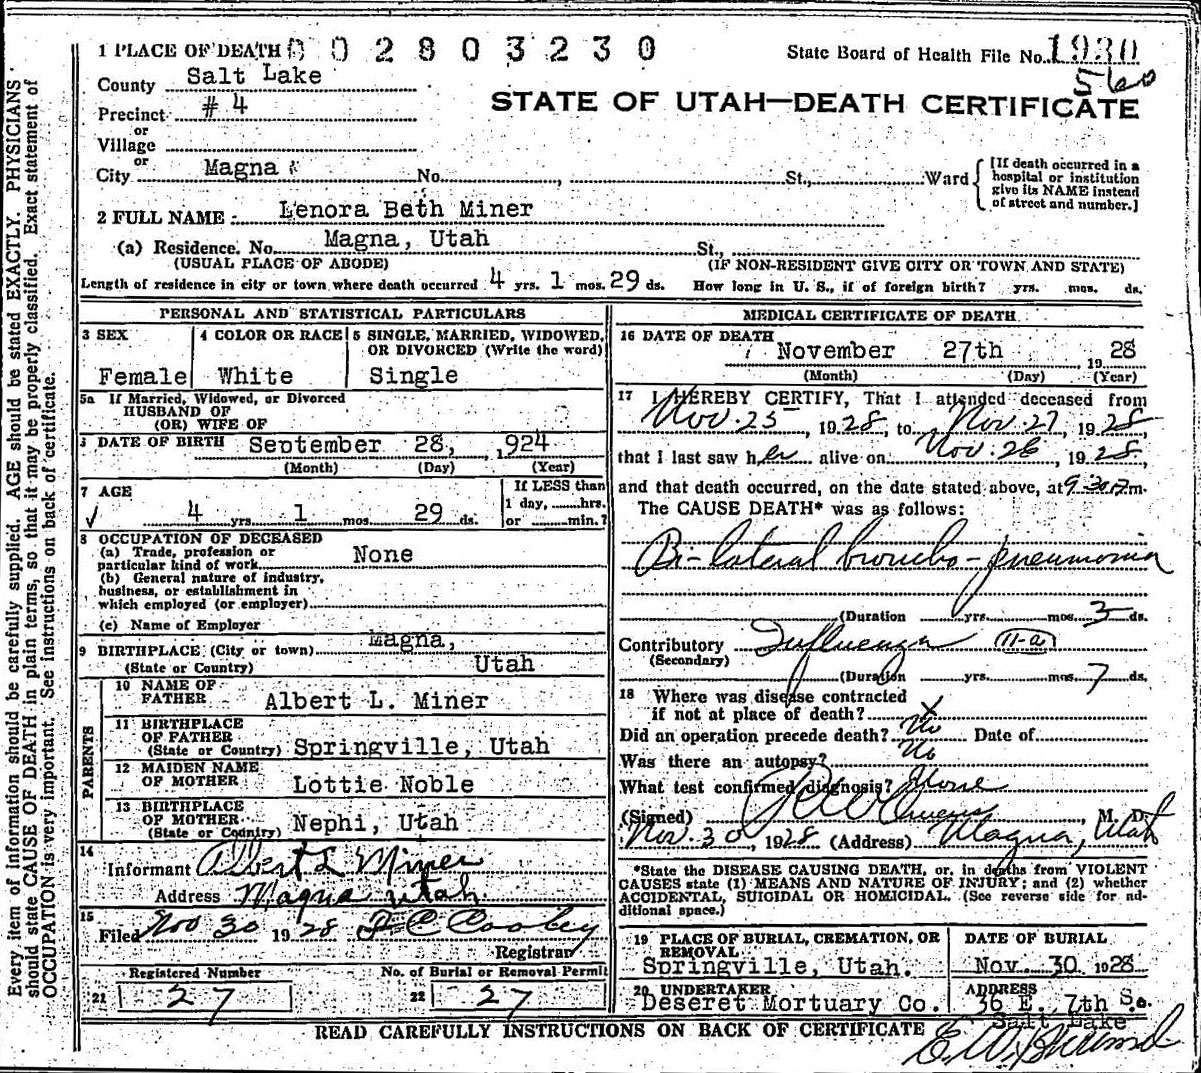 1 PLACE OF DEATH 002803230
State Board of Health File No. 1930
560
County Salt Lake
STATE OF UTAH—DEATH CERTIFICATE
Precinct #4
or
Village
or
City Magna No. , St., Ward
[If death occurred in a hospital or institution give its NAME instead of street and number.]
2 FULL NAME Lenora Beth Miner
(a) Residence. No. Magna, Utah St.,
(USUAL PLACE OF ABODE) (IF NON-RESIDENT GIVE CITY OR TOWN AND STATE)
Length of residence in city or town where death occurred 4 yrs. 1 mos. 29 ds. How long in U. S., if of foreign birth? yrs. mos. ds.
PERSONAL AND STATISTICAL PARTICULARS
3 SEX
Female
4 COLOR OR RACE
White
5 SINGLE, MARRIED, WIDOWED, OR DIVORCED (Write the word)
Single
5a If Married, Widowed, or Divorced
HUSBAND OF
(OR) WIFE OF
DATE OF BIRTH September 28, 1924
(Month) (Day) (Year)
7 AGE
4 yrs. 1 mos. 29 ds.
If LESS than
1 day, hrs.
or min.?
8 OCCUPATION OF DECEASED
(a) Trade, profession or
particular kind of work None
(b) General nature of industry,
business, or establishment in
which employed (or employer)
(c) Name of Employer
9 BIRTHPLACE (City or town) Magna,
(State or Country) Utah
PARENTS
10 NAME OF FATHER Albert L. Miner
11 BIRTHPLACE OF FATHER (State or Country) Springville, Utah
12 MAIDEN NAME OF MOTHER Lottie Noble
13 BIRTHPLACE OF MOTHER (State or Country) Nephi, Utah
14
Informant Albert L Miner
Address Magna Utah
15
Filed Nov 30 1928
Registrar
Registered Number
21 27
No. of Burial or Removal Permit
22 27
MEDICAL CERTIFICATE OF DEATH
16 DATE OF DEATH
November 27th 1928
(Month) (Day) (Year)
17 I HEREBY CERTIFY, That I attended deceased from
Nov. 25, 1928, to Nov. 27, 1928
that I last saw her alive on Nov. 26, 1928,
and that death occurred, on the date stated above, at 9:30 m.
The CAUSE DEATH* was as follows:
Bi-lateral broncho-pneumonia
(Duration yrs. mos. 3 ds.
Contributory Influenza 11-a
(Secondary)
(Duration yrs. mos. 7 ds.
18 Where was disease contracted
if not at place of death? X
Did an operation precede death? No Date of
Was there an autopsy? No
What test confirmed diagnosis? None
(Signed) Owens, M. D.
Nov. 30, 1928 (Address) Magna, Utah
*State the DISEASE CAUSING DEATH, or, in deaths from VIOLENT
CAUSES state (1) MEANS AND NATURE OF INJURY; and (2) whether
ACCIDENTAL, SUICIDAL OR HOMICIDAL. (See reverse side for ad-
ditional space.)
19 PLACE OF BURIAL, CREMATION, OR REMOVAL
Springville, Utah.
DATE OF BURIAL
Nov. 30 1928
20 UNDERTAKER
Deseret Mortuary Co.
ADDRESS
36 E. 7th So.
Salt Lake
READ CAREFULLY INSTRUCTIONS ON BACK OF CERTIFICATE
Every item of information should be carefully supplied. AGE should be stated EXACTLY. PHYSICIANS
should state CAUSE OF DEATH in plain terms, so that it may be properly classified. Exact statement of
OCCUPATION is very important. See instructions on back of certificate.